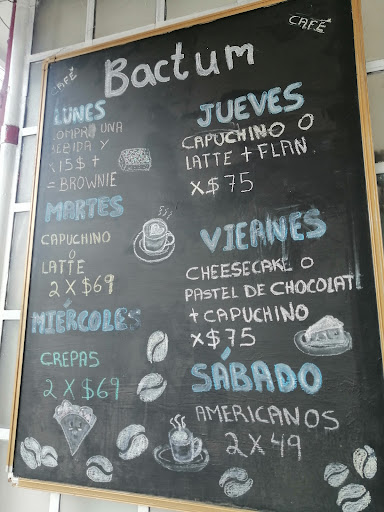 CAFÉ
CAFÉ
Bactum
LUNES
COMPRA UNA
BEBIDA Y
15$ +
= BROWNIE
MARTES
CAPUCHINO
O
LATTE
2 X $69
MIÉRCOLES
CREPAS
2 X $69
JUEVES
CAPUCHINO O
LATTE + FLAN
X $75
VIERNES
CHEESECAKE O
PASTEL DE CHOCOLATE
+ CAPUCHINO
X $75
SÁBADO
AMERICANOS
2 X 49